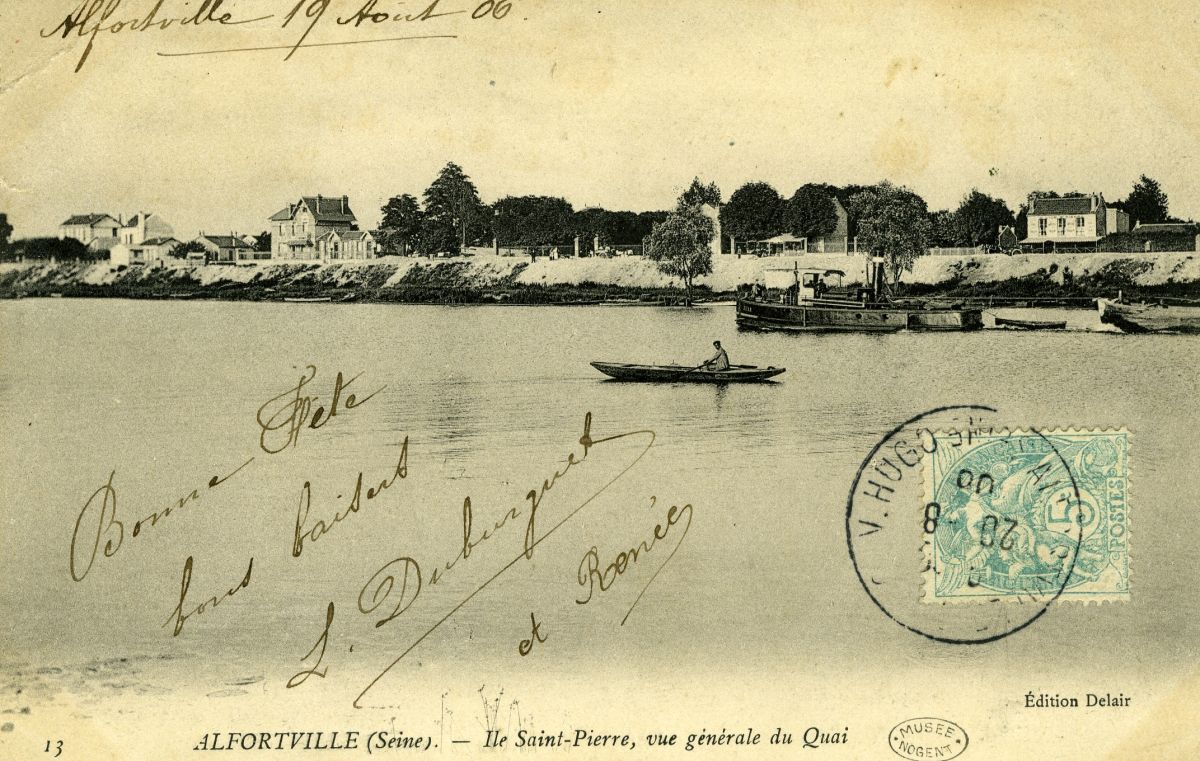 Alfortville 19 Août 06.
Bonne Fête
bons baisers
L. Duburguet
et Renée
V. HUGO
20 8
06
5
POSTES
Édition Delair
13 ALFORTVILLE (Seine). — Ile Saint-Pierre, vue générale du Quai
MUSÉE
NOGENT